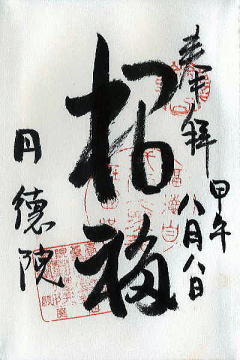 奉拝
甲午
八月八日
招福
円徳院